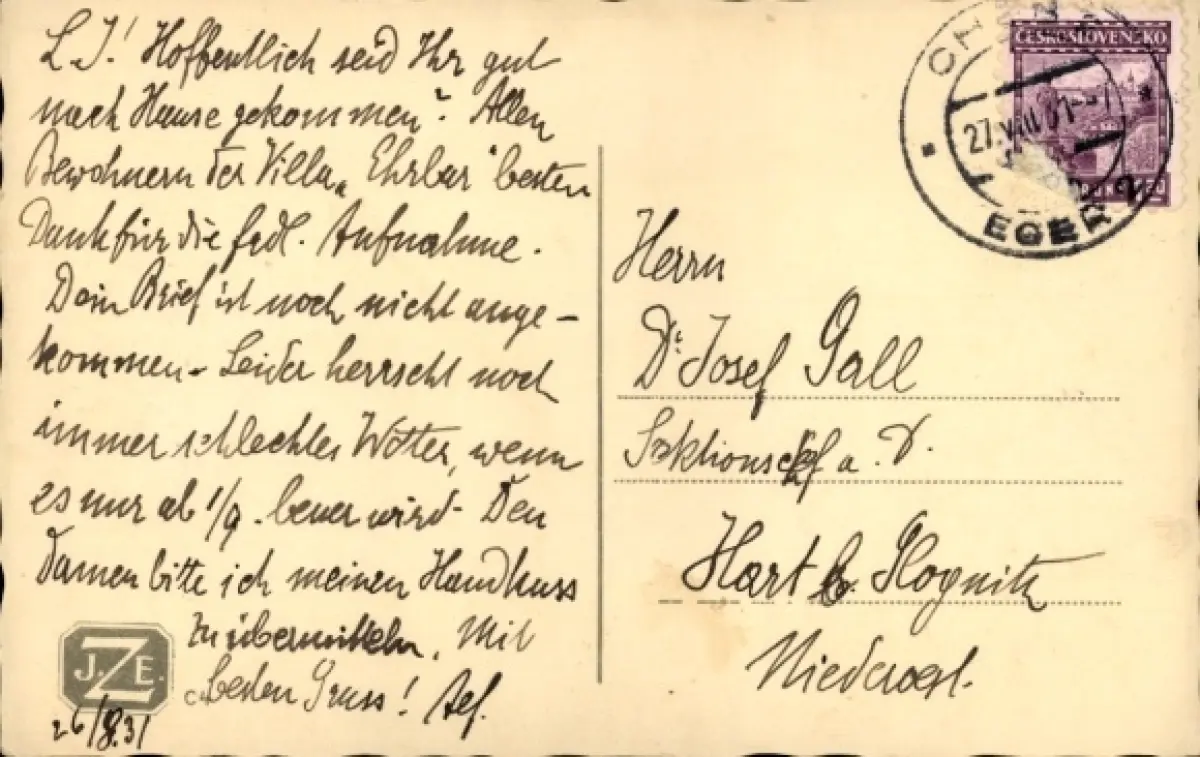 L J! Hoffentlich seid Ihr gut
nach Hause gekommen? Allen
Bewohnern der Villa „Ehrbar" besten
Dank für die frdl. Aufnahme.
Dein Brief ist noch nicht ange-
kommen. Leider herrscht noch
immer schlechtes Wetter, wenn
es nur ab 1/9. besser wird. Den
Damen bitte ich meinen Handkuss
zu übermitteln. Mit
besten Gruss!
26/8.31
J.Z.E.
ČESKOSLOVENSKO
27.VIII.31
EGER 2
Herrn
Dr. Josef Gall
Sektionschef a. D.
Hart b. Glognitz
Niederoest.